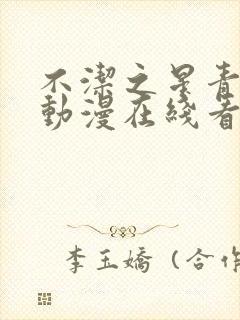 不潔之星青
動漫在綫看
李玉嬌（合作